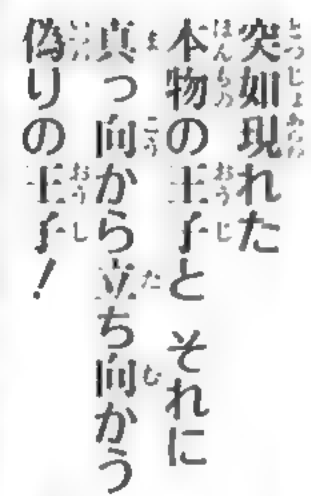 突如現れた
本物の王子と それに
真っ向から立ち向かう
偽りの王子！